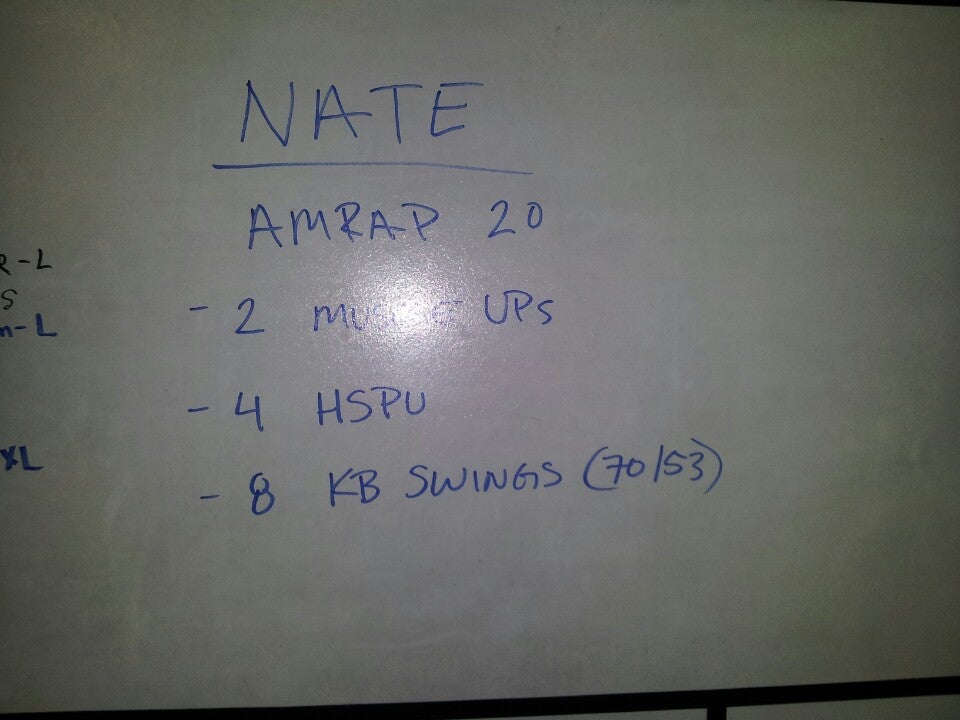 NATE
AMRAP 20
- 2 MUSCLE UPS
- 4 HSPU
- 8 KB SWINGS (70/53)
R-L
S
m-L
XL